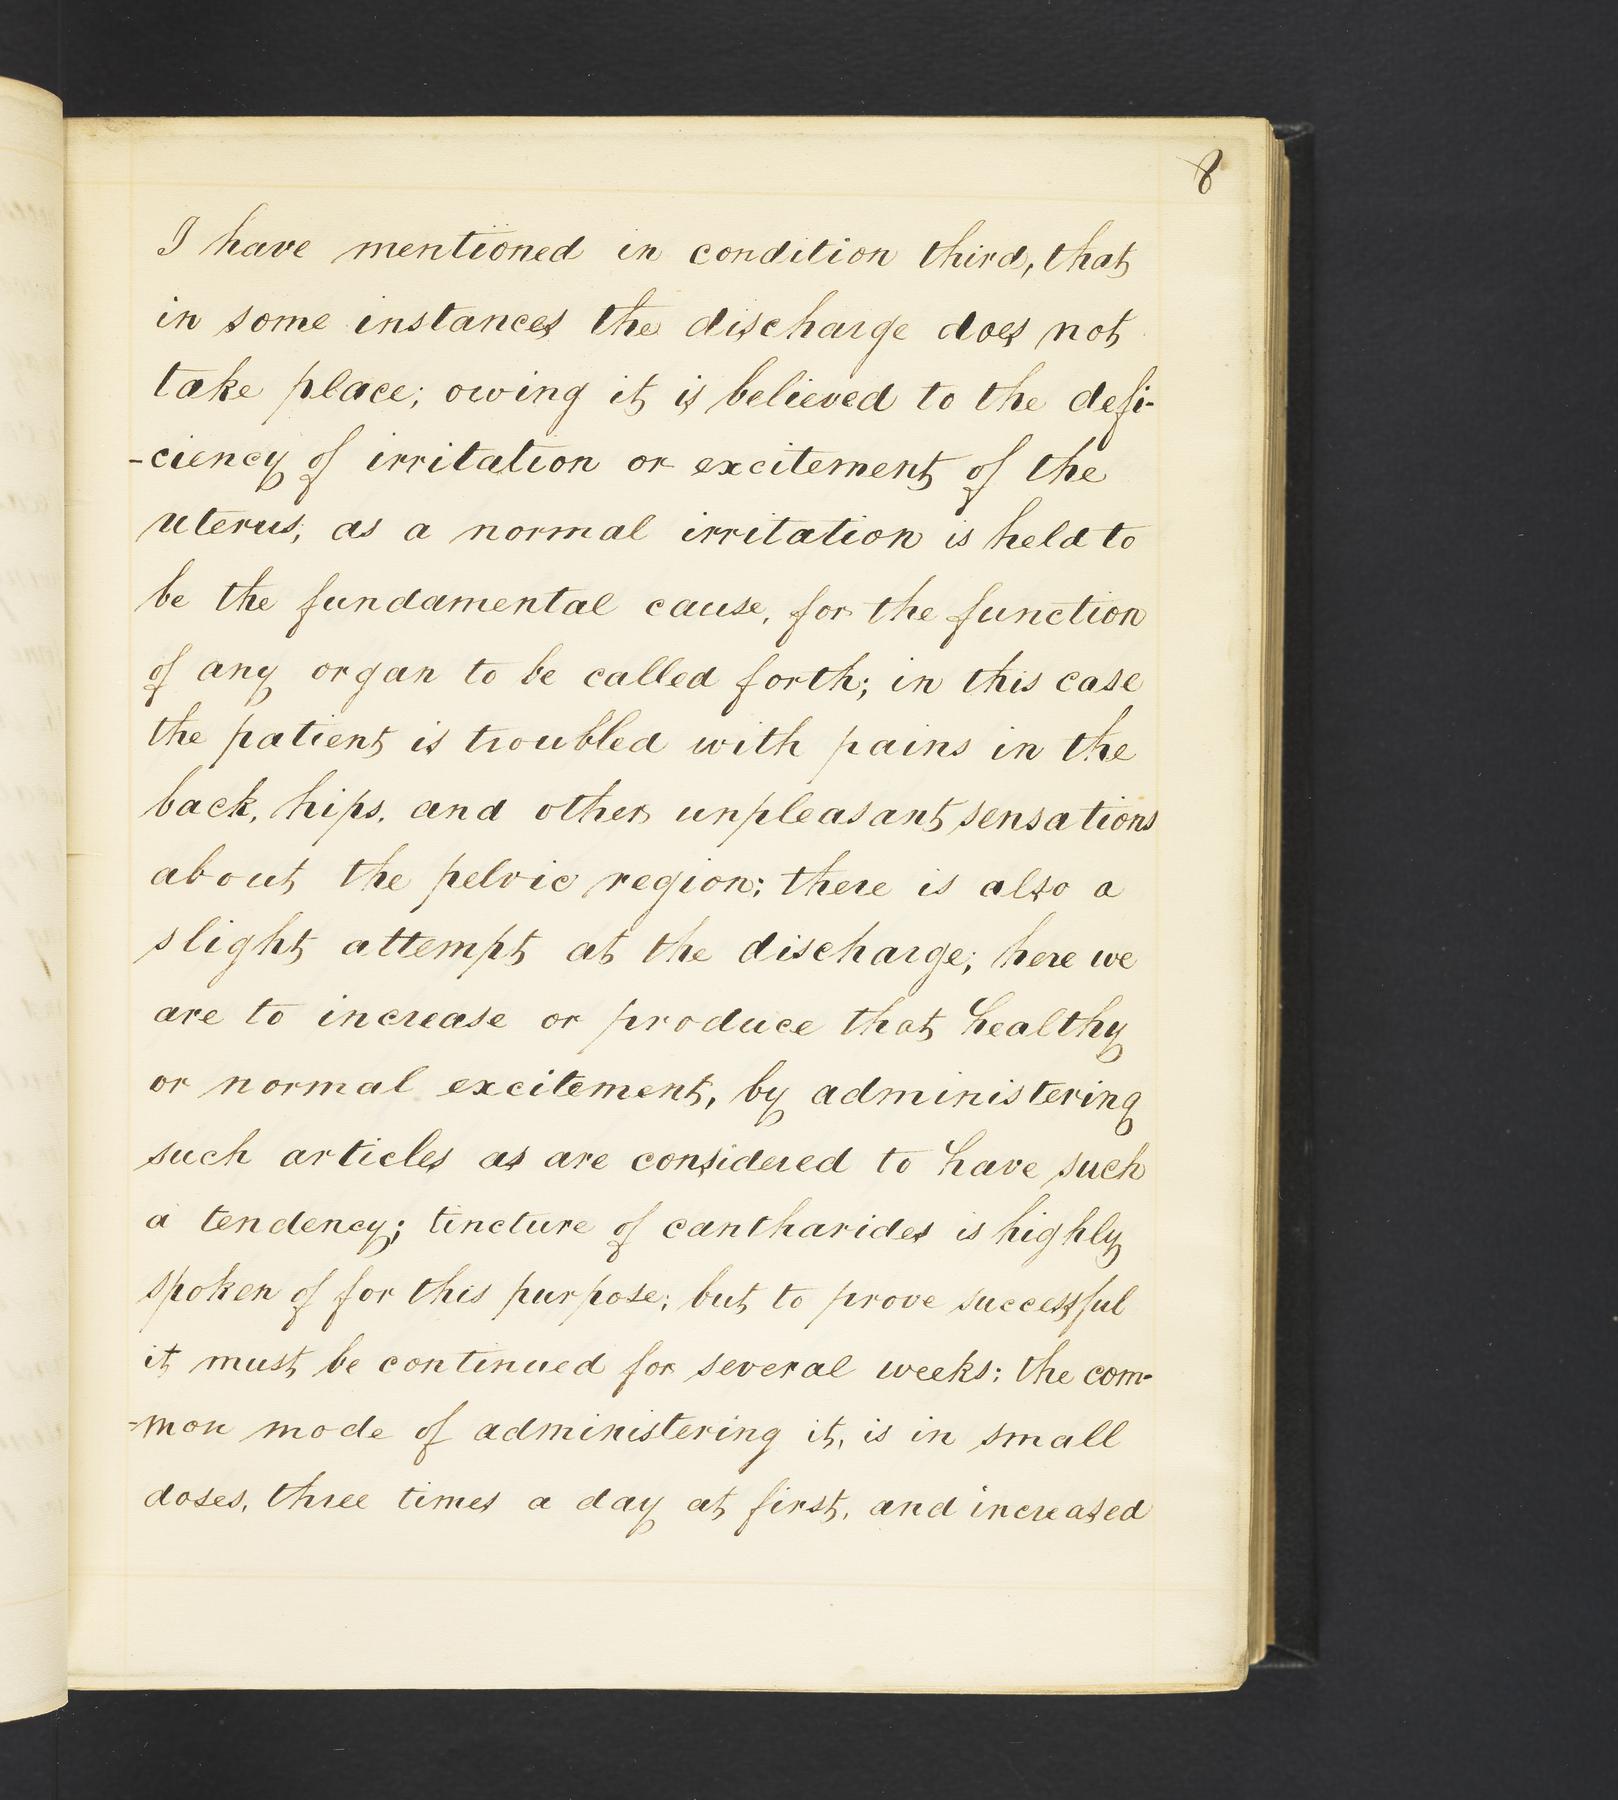 8
I have mentioned in condition third, that
in some instances the discharge does not
take place; owing it is believed to the defi-
-ciency of irritation or excitement of the
uterus, as a normal irritation is held to
be the fundamental cause, for the function
of any organ to be called forth; in this case
the patient is troubled with pains in the
back, hips, and other unpleasant sensations
about the pelvic region; there is also a
slight attempt at the discharge; here we
are to increase or produce that healthy
or normal excitement, by administering
such articles as are considered to have such
a tendency; tincture of cantharides is highly
spoken of for this purpose; but to prove successful
it must be continued for several weeks; the com-
-mon mode of administering it, is in small
doses, three times a day at first, and increased